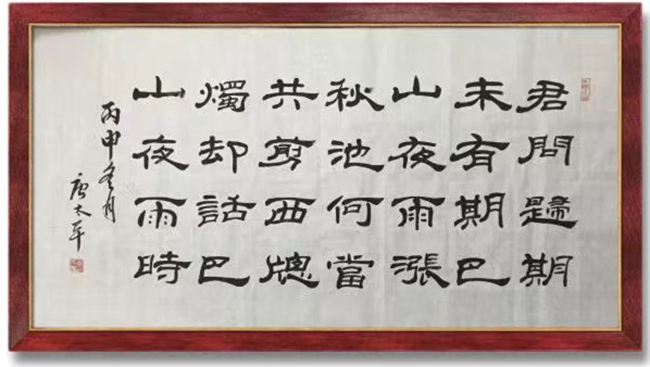 君問歸期
未有期巴
山夜雨漲
秋池何當
共剪西窗
燭却話巴
山夜雨時
丙申冬月
唐太平